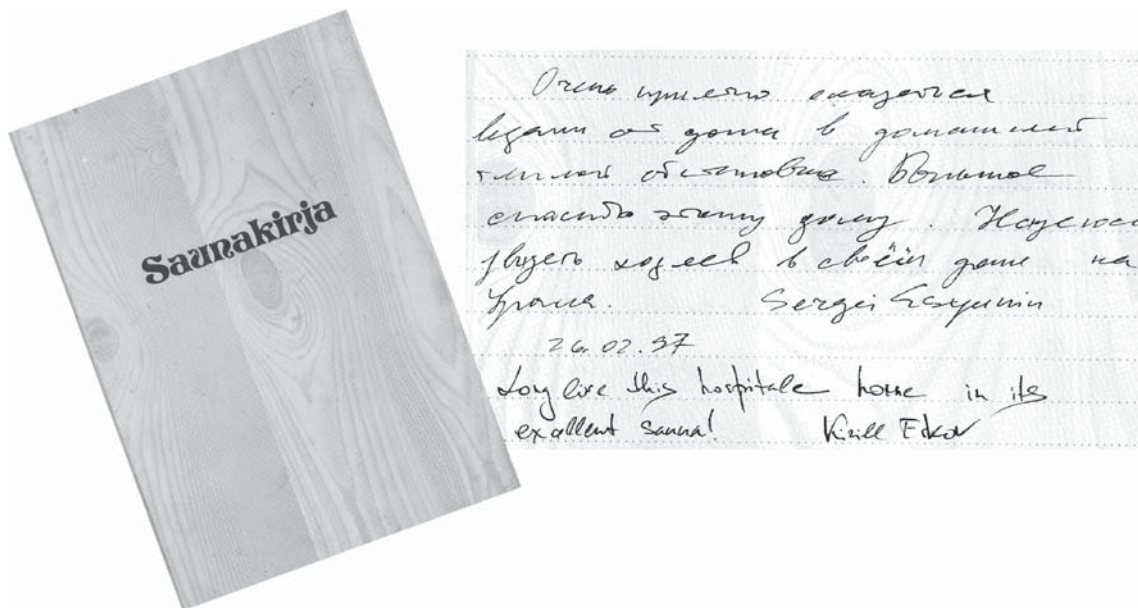 Saunakirja
Очень приятно оказаться
вдали от дома в домашней
теплой обстановке. Большое
спасибо этому дому. Надеюсь
увидеть хозяев в своём доме на
Урале. Sergei Esyunin
26.02.97
Long live this hospitale home in its
excellent sauna! Kirill Eskov